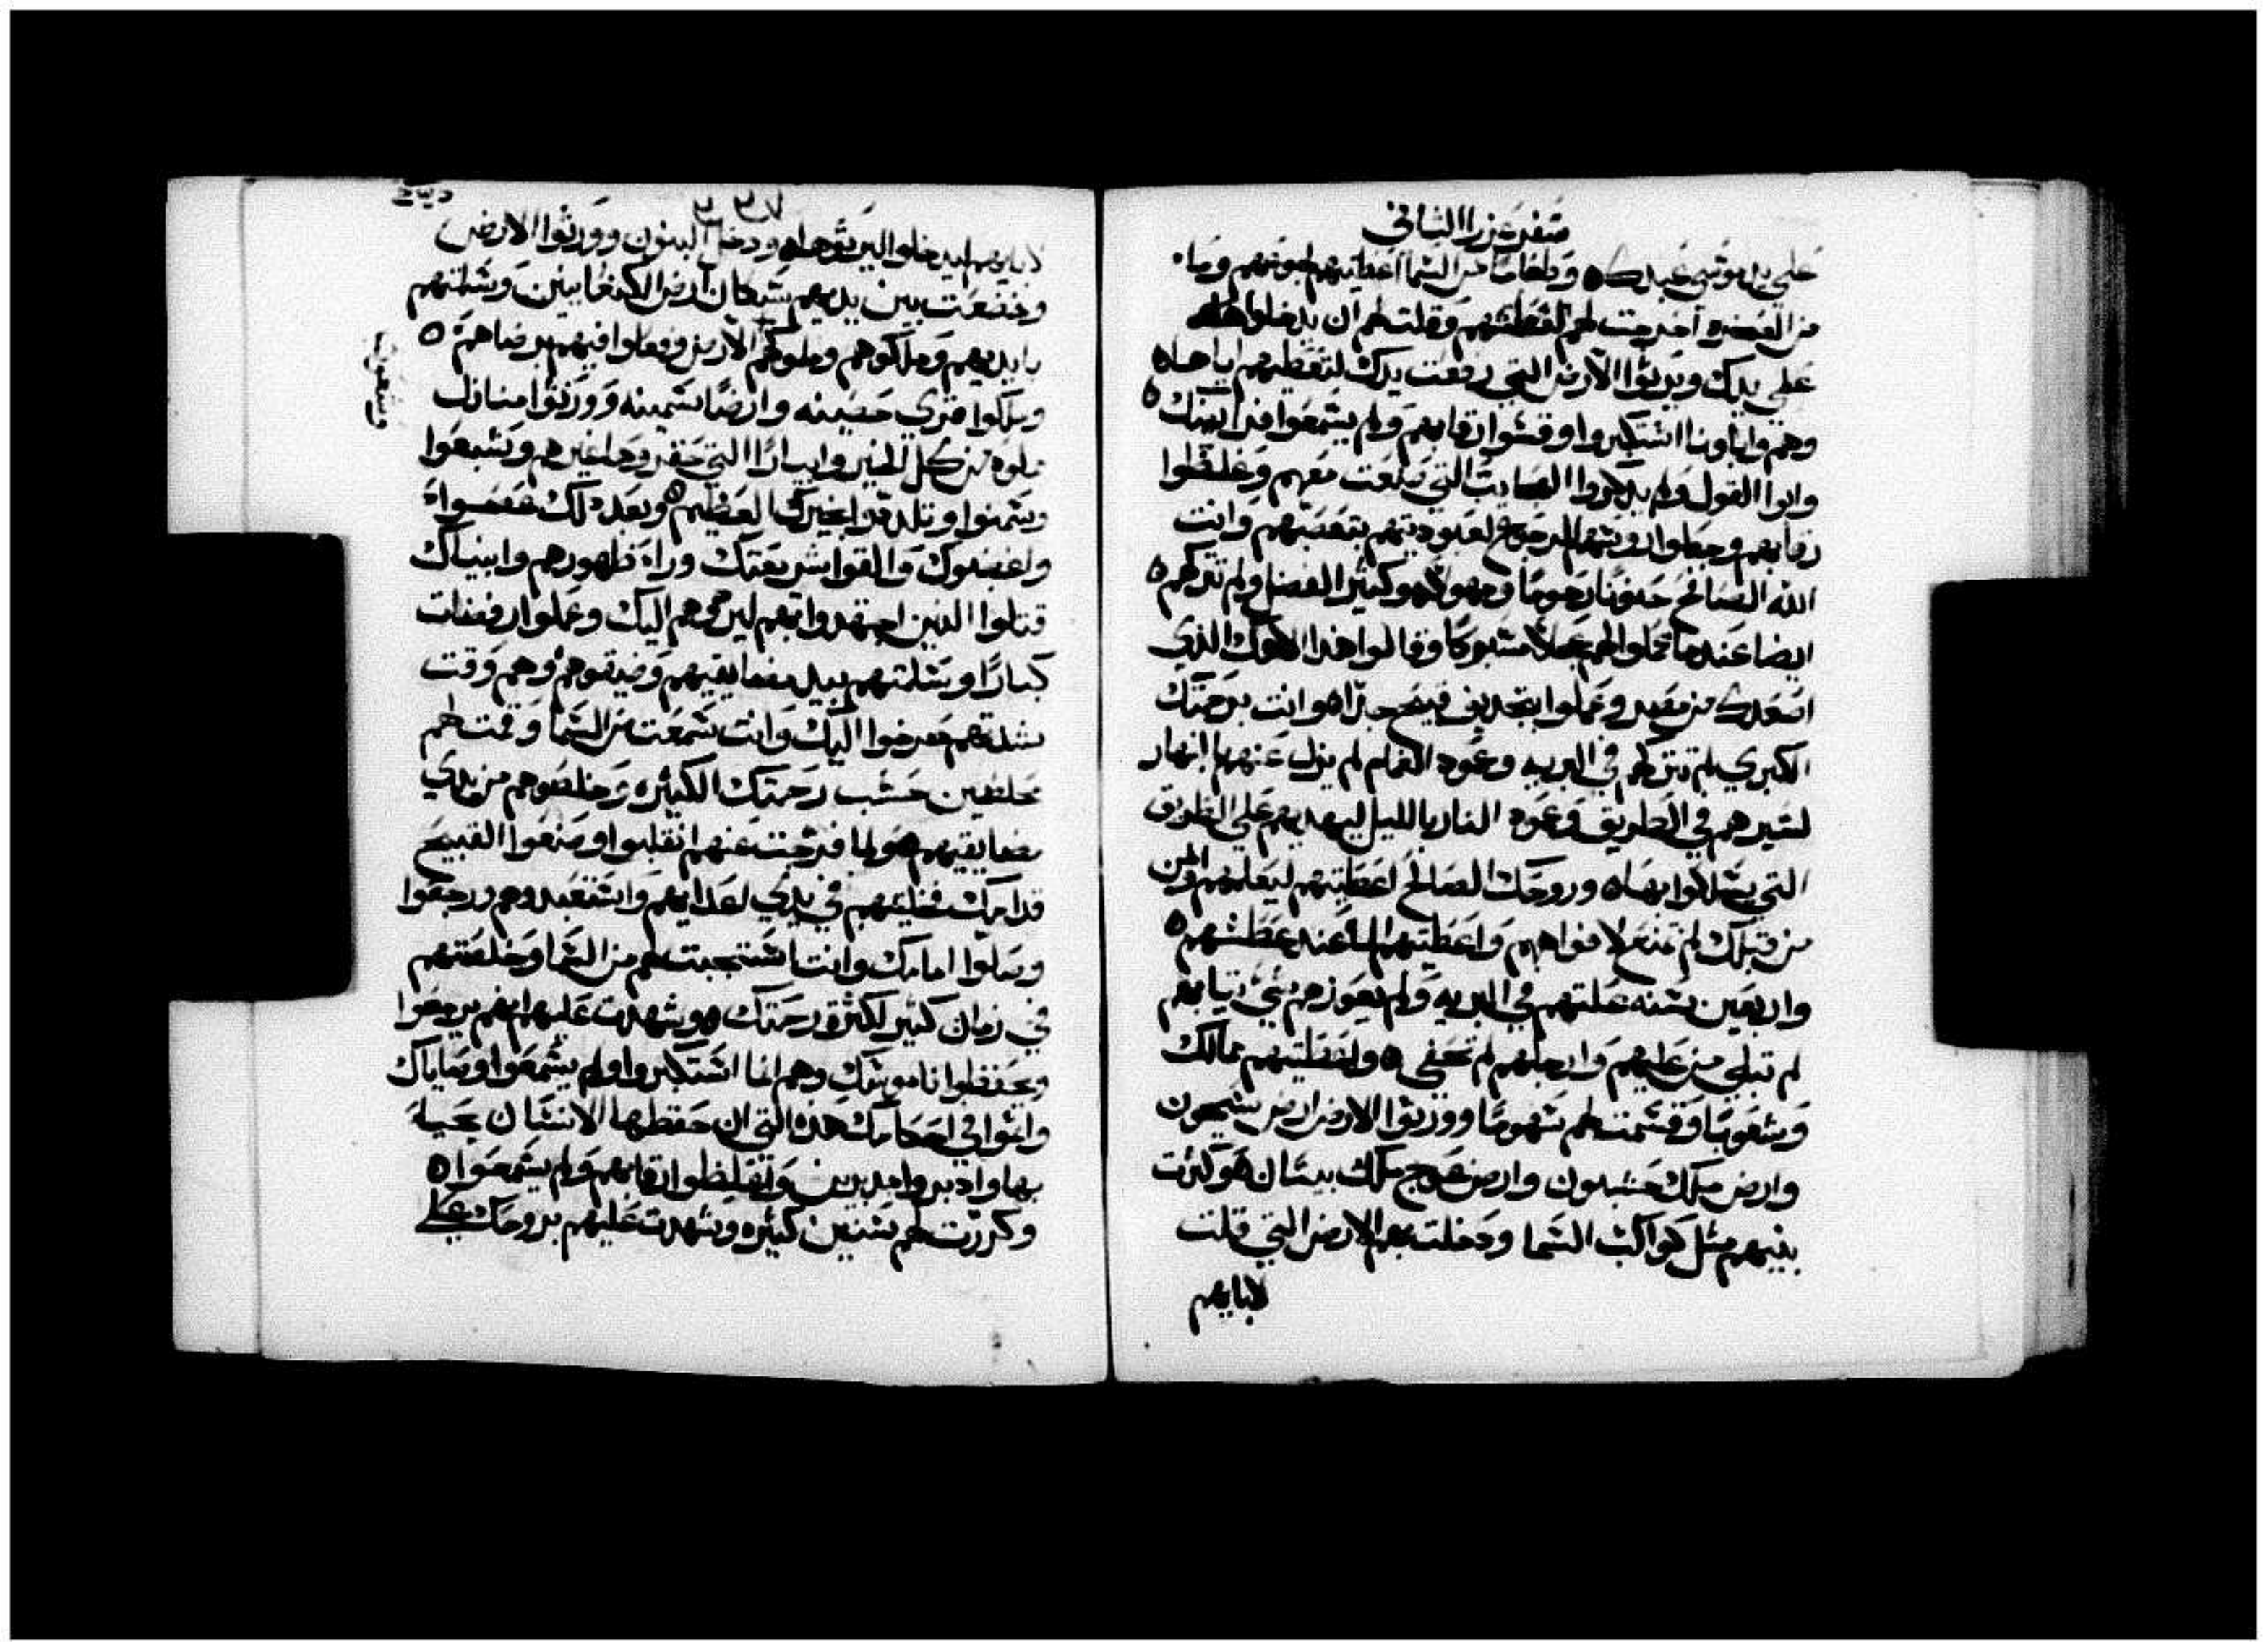 سفر عزرا الثاني
علي يد موسي عبدك ٥ وطعامًا من السما اعطيتهم لجوعهم وماء
من الصخره اخرجت لهم لعطشهم وقلت لهم ان يدخلوا
علي يدك ويرثوا الارض التي رفعت يدك لتعطيهم اياها ٥
وهم وابآونا استكبروا وقسوا رقابهم ولم يسمعوا من ٥
وابوا القول ولم يدكروا العجايب التي صنعت معهم وغلظوا
رقابهم وجعلوا للرجوع لعبوديتهم بتعصبهم وانت
الله الصالح حنونًا رحومًا ومهولا هو كثير الفضل ولم تتركهم ٥
ايضا عندما عملوا لهم عجلًا مسبوكا وقالوا هذا الاهك الذي
اصعدك من مصر وعملوا بتجديف قبيح جدًا ٥ وانت برحمتك
الكبري لم تتركهم في البريه وعمود الغمام لم يزل عنهم بالنهار
لتسيرهم في الطريق وعمود النار بالليل ليهديهم علي الطريق
التي يسلكوا بها ٥ وروحك الصالح اعطيتهم ليعلمهم والمن
من قبلك لم تمنع لافواههم واعطيتهم الما عند عطشهم ٥
واربعين سنه علتهم في البريه ولم يعوزهم شي ثيابهم
لم تبلي من عليهم وارجلهم لم تحفي ٥ واعطيتهم ممالك
وشعوبًا وقسمت لهم سهومًا وورثوا الارض ارض سيحون
وارض ملك حسبون وارض عوج ملك بيسان ٥ وكثرت
بنيهم مثل كواكب السما ودخلت بهم الارض التي قلت
لابايهم
٣٣٧
لابايهم ليدخلوا اليرثوها ٥ ودخل البنون وورثوا الارض
وخضعت بين يديهم سكان ارض الكنعانيين وسلمتهم
بايديهم وملكوهم وملوكهم الارض وفعلوا فيهم برضاهم ٥
وملكوا قري حصينه وارضًا سمينه وورثوا منازل
ملوه من كل الخير وابيارًا التي حفروها غيرهم وشبعوا
وسمنوا وتلددوا بخيرك العظيم ٥ وبعد دلك عصوا
واغضبوك والقوا شريعتك وراء ظهورهم وانبياك
قتلوا الذين اجتهدوا بهم ليرجعهم اليك وعملوا رفضات
كبارًا وسلمتهم بيد مضايقيهم وضيقوهم وهم وقت
شدتهم صرخوا اليك وانت سمعت من السما وقمت لهم
مخلصين حسب رحمتك الكثيره وخلصوهم من يدي
مضايقيهم ٥ ولما فرجت عنهم انقلبوا وصنعوا القبيح
قدامك فخليتهم في يدي اعدايهم واستعبدوهم ورجعوا
وصلوا امامك وانت استجبت لهم من السما وخلصتهم
في زمان كثير لكثرة رحمتك ٥ وشهدت عليهم انهم يرجعوا
ويحفظوا ناموسك وهم انما استكبروا ولم يسمعوا وصاياك
واثموا في احكامك هذه التي ان حفظها الانسان يحيا
بها وادبروا مدبرين وتغلظوا رقابهم ولم يسمعوا ٥
وكررت لهم سنين كثيره وشهدت عليهم بروحك علي